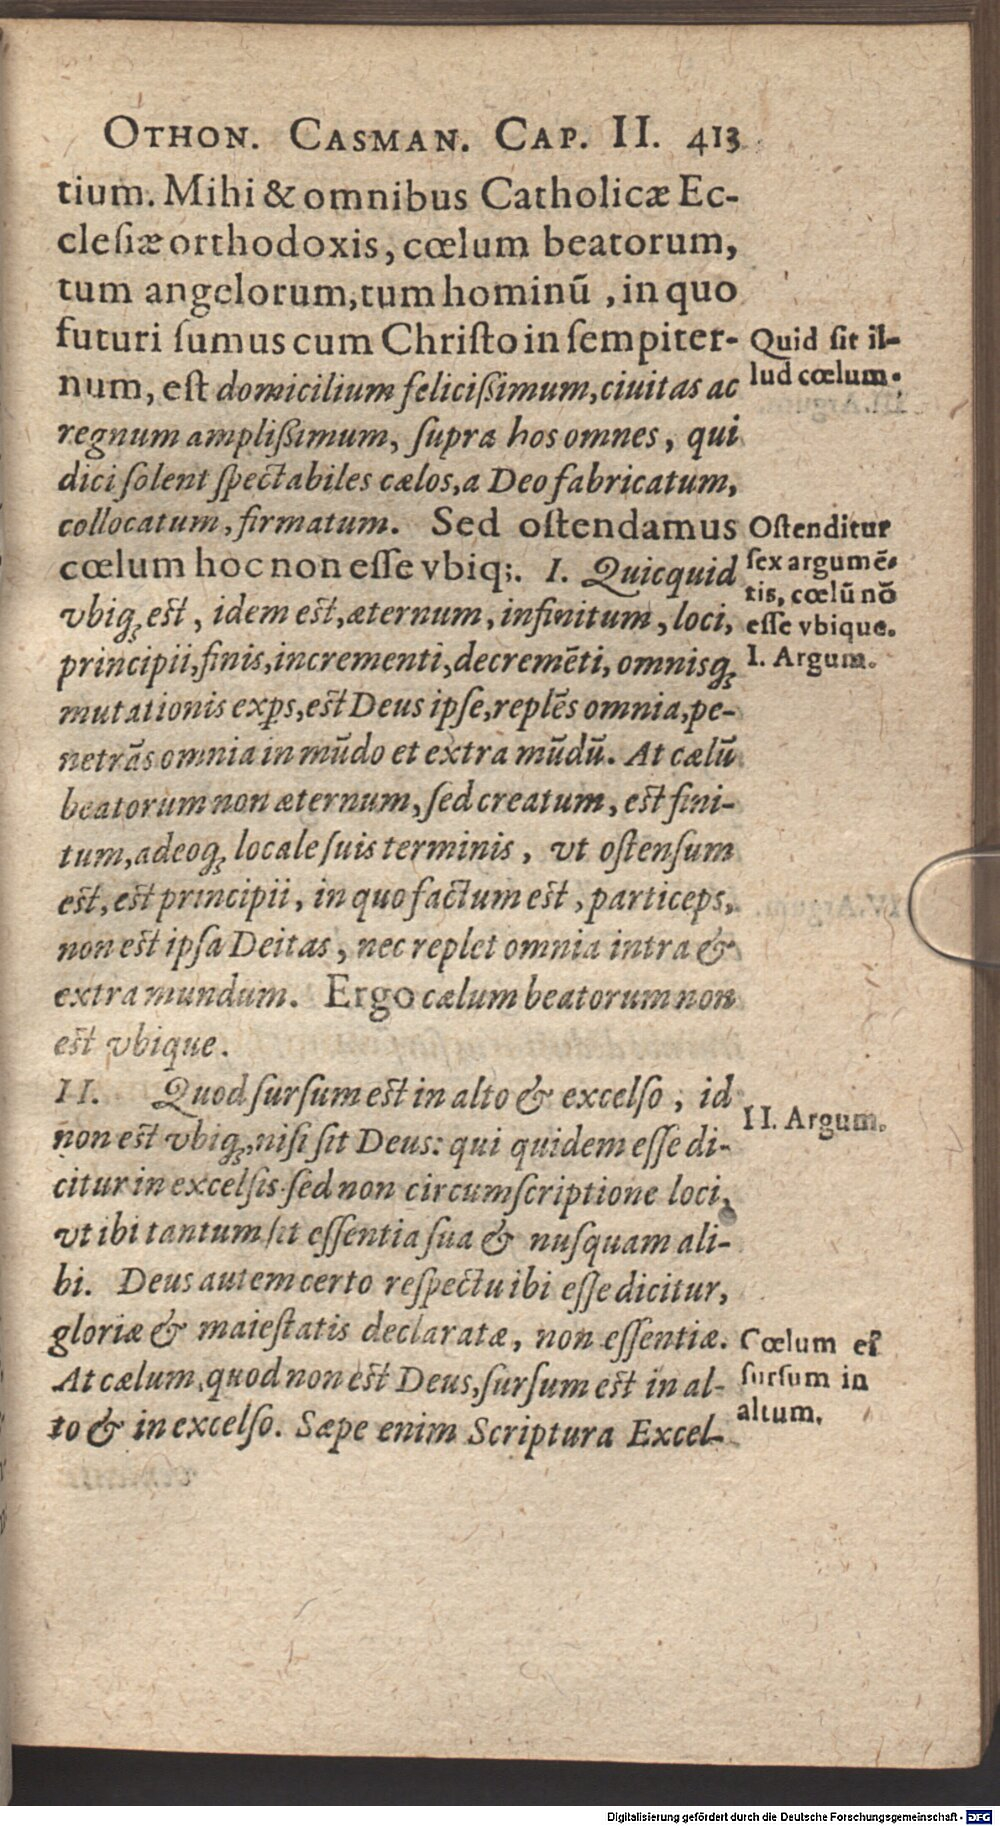 OTHON. CASMAN. CAP. II. 413
tium. Mihi & omnibus Catholicæ Ec-
clesiæ orthodoxis, cœlum beatorum,
tum angelorum, tum hominū, in quo
futuri sumus cum Christo in sempiter-
num, est domicilium felicißimum, ciuitas ac
regnum amplißimum, supra hos omnes, qui
dici solent spectabiles cælos, a Deo fabricatum,
collocatum, firmatum. Sed ostendamus
cœlum hoc non esse vbiq;. I. Quicquid
vbiq; est, idem est, æternum, infinitum, loci,
principii, finis, incrementi, decremēti, omnisq;
mutationis exꝑs, est Deus ipse, replēs omnia, pe-
netrās omnia in mūdo et extra mūdū. At cælū
beatorum non æternum, sed creatum, est fini-
tum, adeoq; locale suis terminis, vt ostensum
est, est principii, in quo factum est, particeps,
non est ipsa Deitas, nec replet omnia intra &
extra mundum. Ergo cælum beatorum non
est vbique.
II. Quod sursum est in alto & excelso, id
non est vbiq;, nisi sit Deus: qui quidem esse di-
citur in excelsis sed non circumscriptione loci,
vt ibi tantum sit essentia sua & nusquam ali-
bi. Deus autem certo respectu ibi esse dicitur,
gloriæ & maiestatis declaratæ, non essentiæ.
At cælum, quod non est Deus, sursum est in al-
to & in excelso. Sæpe enim Scriptura Excel-
Quid sit il-
lud cœlum.
Ostenditur
sex argumē-
tis, cœlū nō
esse vbique.
I. Argum.
II. Argum.
Cœlum est
sursum in
altum.
Digitalisierung gefördert durch die Deutsche Forschungsgemeinschaft - DFG